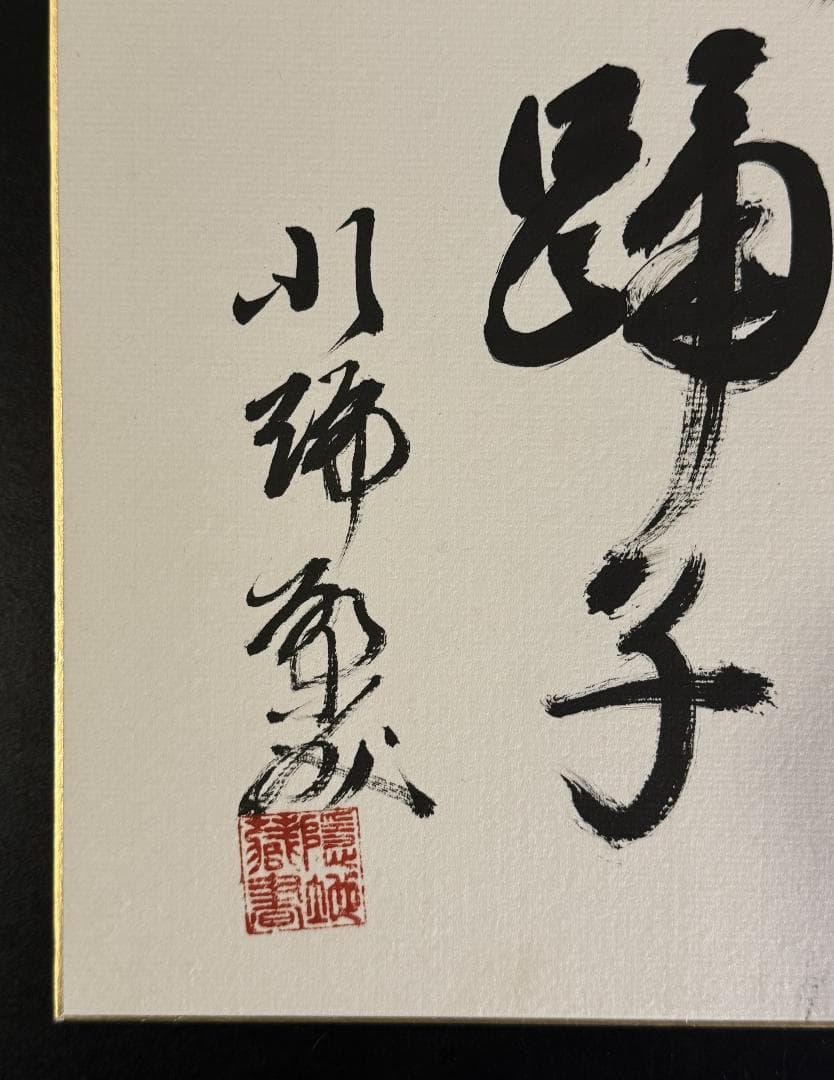 踊子
川端康成